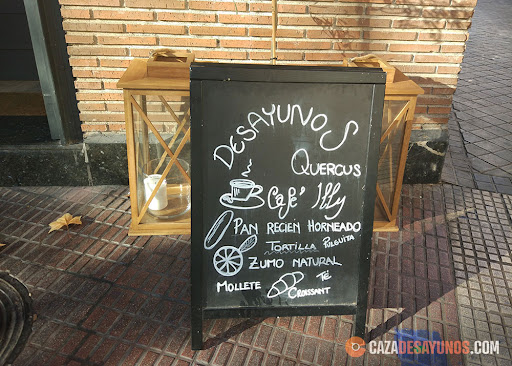 DESAYUNOS
QUERCUS
Café Illy
PAN RECIÉN HORNEADO
TORTILLA PULGUITA
ZUMO NATURAL
MOLLETE CROISSANT TÉ
CAZADESAYUNOS.COM